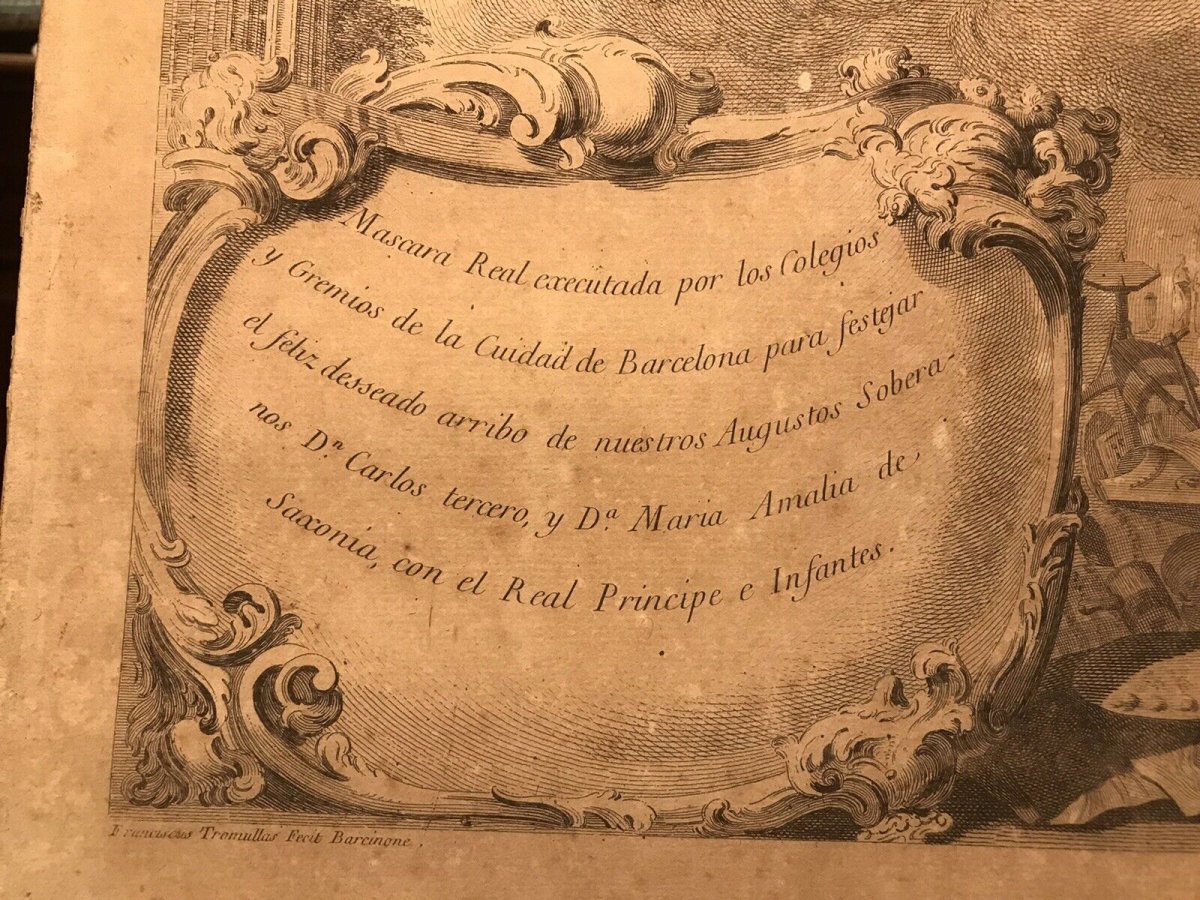 Mascara Real executada por los Colegios
y Gremios de la Cuidad de Barcelona para festejar
el féliz desseado arribo de nuestros Augustos Sobera-
nos D.ⁿ Carlos tercero, y D.ª Maria Amalia de
Saxonia, con el Real Principe e Infantes.
Franciscus Tromullas Fecit Barcinone.